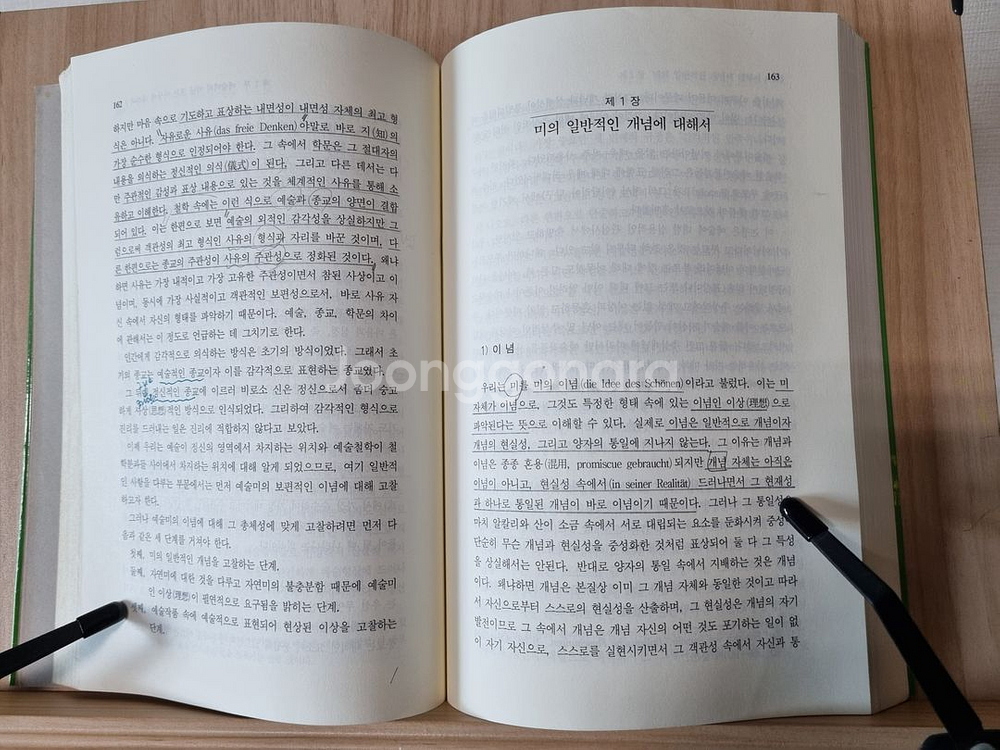 162
하지만 마음 속으로 기도하고 표상하는 내면성이 내면성 자체의 최고 형
식은 아니다. 자유로운 사유(das freie Denken)야말로 바로 지(知)의
가장 순수한 형식으로 인정되어야 한다. 그 속에서 학문은 그 절대자의
내용을 의식하는 정신적인 의식(儀式)이 된다. 그리고 다른 데서는 다
만 주관적인 감성과 표상 내용으로 있는 것을 체계적인 사유를 통해 소
유하고 이해한다. 철학 속에는 이런 식으로 예술과 종교의 양면이 결합
되어 있다. 이는 한편으로 보면 예술의 외적인 감각성을 상실하지만 그
럼으로써 객관성의 최고 형식인 사유의 형식과 자리를 바꾼 것이며, 다
른 한편으로는 종교의 주관성이 사유의 주관성으로 정화된 것이다. 왜냐
하면 사유는 가장 내적이고 가장 고유한 주관성이면서 참된 사상이고 이
념이며, 동시에 가장 사실적이고 객관적인 보편성으로서, 바로 사유 자
신 속에서 자신의 형태를 파악하기 때문이다. 예술, 종교, 학문의 차이
에 관해서는 이 정도로 언급하는 데 그치기로 한다.
인간에게 감각적으로 의식하는 방식은 초기의 방식이었다. 그래서 초
기의 종교는 예술적인 종교이자 이를 감각적으로 표현하는 종교였다.
그 정신적인 종교에 이르러 비로소 신은 정신으로서 좀더 숭고
하게 사상(思想)적인 방식으로 인식되었다. 그리하여 감각적인 형식으로
진리를 드러내는 일은 진리에 적합하지 않다고 보았다.
이제 우리는 예술이 정신의 영역에서 차지하는 위치와 예술철학이 철
학분과들 사이에서 차지하는 위치에 대해 알게 되었으므로, 여기 일반적
인 사항을 다루는 부문에서는 먼저 예술미의 보편적인 이념에 대해 고찰
하고자 한다.
그러나 예술미의 이념에 대해 그 총체성에 맞게 고찰하려면 먼저 다
음과 같은 세 단계를 거쳐야 한다.
첫째, 미의 일반적인 개념을 고찰하는 단계.
둘째, 자연미에 대한 것을 다루고 자연미의 불충분함 때문에 예술미
인 이상(理想)이 필연적으로 요구됨을 밝히는 단계.
셋째, 예술작품 속에 예술적으로 표현되어 현상된 이상을 고찰하는
단계.
163
제 1 장
미의 일반적인 개념에 대해서
1) 이 념
joonggonara
우리는 미를 미의 이념(die Idee des Schönen)이라고 불렀다. 이는 미
자체가 이념으로, 그것도 특정한 형태 속에 있는 이념인 이상(理想)으로
파악된다는 뜻으로 이해할 수 있다. 실제로 이념은 일반적으로 개념이자
개념의 현실성, 그리고 양자의 통일에 지나지 않는다. 그 이유는 개념과
이념은 종종 혼용(混用, promiscue gebraucht)되지만 개념 자체는 아직은
이념이 아니고, 현실성 속에서(in seiner Realität) 드러나면서 그 현재성
과 하나로 통일된 개념이 바로 이념이기 때문이다. 그러나 그 통일성
마치 알칼리와 산이 소금 속에서 서로 대립되는 요소를 둔화시켜 중성
단순히 무슨 개념과 현실성을 중성화한 것처럼 표상되어 둘 다 그 특성
을 상실해서는 안된다. 반대로 양자의 통일 속에서 지배하는 것은 개념
이다. 왜냐하면 개념은 본질상 이미 그 개념 자체와 동일한 것이고 따라
서 자신으로부터 스스로의 현실성을 산출하며, 그 현실성은 개념의 자기
발전이므로 그 속에서 개념은 개념 자신의 어떤 것도 포기하는 일이 없
이 자기 자신으로, 스스로를 실현시키면서 그 객관성 속에서 자신과 통